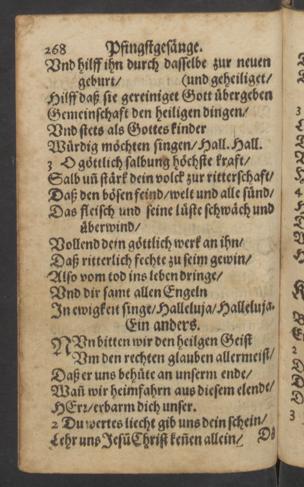 268 Pfingstgesänge.
Vnd hilff ihn durch dasselbe zur neuen
geburt/ (und geheiliget/
Hilff daß sie gereiniget Gott übergeben
Gemeinschaft den heiligen dingen/
Vnd stets als Gottes kinder
Würdig möchten singen/ Hall. Hall.
3 O göttlich salbung höchste kraft/
Salb uñ stärk dein volck zur ritterschaft/
Daß den bösen feind/ welt und alle sünd/
Das fleisch und seine lüste schwäch und
überwind/
Vollend dein göttlich werk an ihn/
Daß ritterlich fechte zu seim gewin/
Also vom tod ins leben dringe/
Vnd dir samt allen Engeln
In ewigkeit singe/ Halleluja/ Halleluja.
Ein anders.
NVn bitten wir den heilgen Geist
Vm den rechten glauben allermeist/
Daß er uns behüte an unserm ende/
Wañ wir heimfahrn aus diesem elende/
HErr/ erbarm dich unser.
2 Du wertes liecht gib uns dein schein/
Lehr uns Jesũ Christ keñen allein/